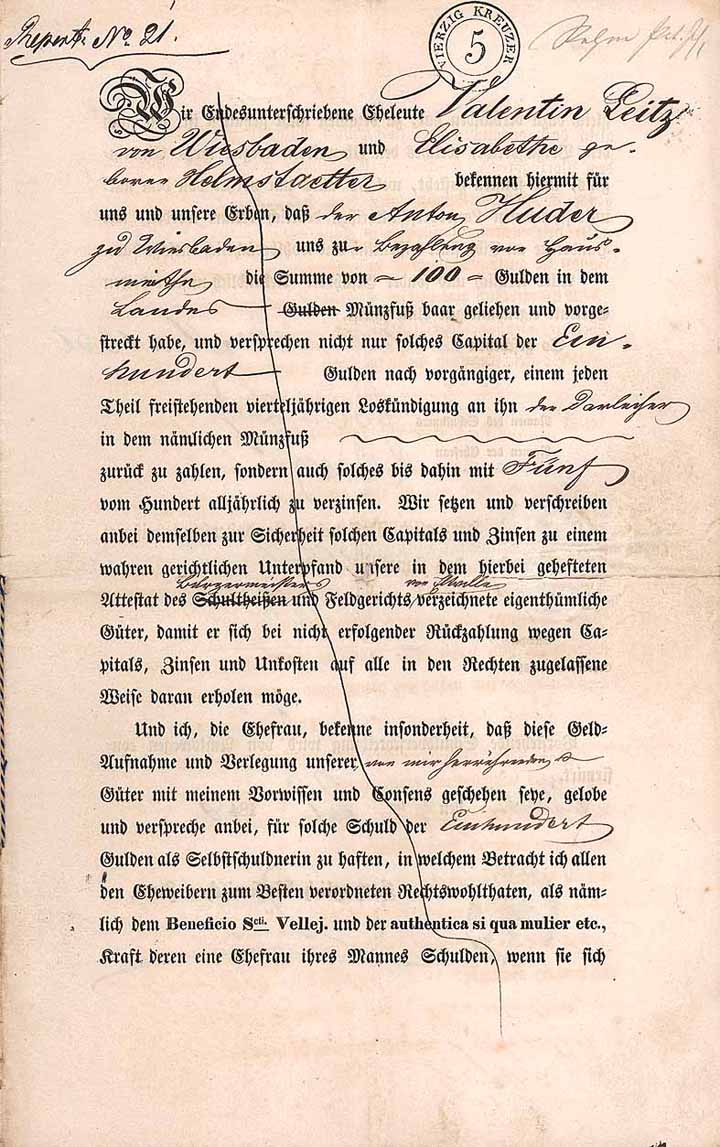 Repert. No. 21.
VIERZIG KREUZER
5
Wir Endesunterschriebene Eheleute Valentin Leitz
von Wiesbaden und Elisabethe ge-
borene Helmstaetter bekennen hiermit für
uns und unsere Erben, daß der Anton Huder
zu Wiesbaden uns zur Bezahlung von Haus-
miethe die Summe von = 100 = Gulden in dem
Landes Gulden Münzfuß baar geliehen und vorge-
streckt habe, und versprechen nicht nur solches Capital der Ein-
hundert Gulden nach vorgängiger, einem jeden
Theil freistehenden vierteljährigen Loskündigung an ihn den Darleiher
in dem nämlichen Münzfuß
zurück zu zahlen, sondern auch solches bis dahin mit Fünf
vom Hundert alljährlich zu verzinsen. Wir setzen und verschreiben
anbei demselben zur Sicherheit solchen Capitals und Zinsen zu einem
wahren gerichtlichen Unterpfand unsere in dem hierbei gehefteten
Bürgermeisters
Attestat des Schultheißen und Feldgerichts verzeichnete eigenthümliche
Güter, damit er sich bei nicht erfolgender Rückzahlung wegen Ca-
pitals, Zinsen und Unkosten auf alle in den Rechten zugelassene
Weise daran erholen möge.
Und ich, die Ehefrau, bekenne insonderheit, daß diese Geld-
Aufnahme und Verlegung unserer von mir herrührenden
Güter mit meinem Vorwissen und Consens geschehen seye, gelobe
und verspreche anbei, für solche Schuld der Einhundert
Gulden als Selbstschuldnerin zu haften, in welchem Betracht ich allen
den Eheweibern zum Besten verordneten Rechtswohlthaten, als näm-
lich dem Beneficio Scti. Vellej. und der authentica si qua mulier etc.,
Kraft deren eine Ehefrau ihres Mannes Schulden, wenn sie sich